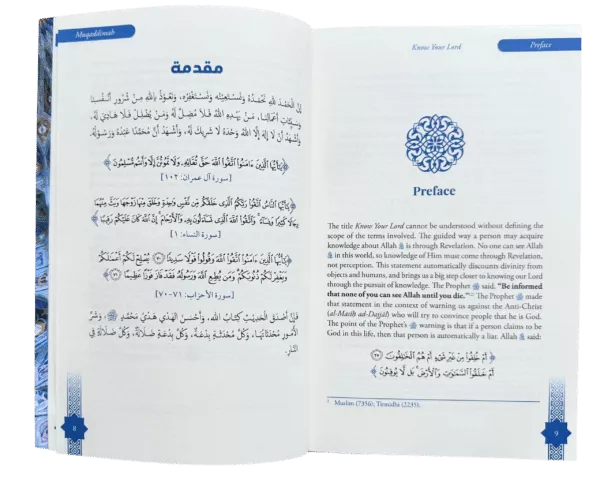 Muqaddimah
مقدمة
إِنَّ الْحَمْدَ لِلَّهِ نَحْمَدُهُ وَنَسْتَعِينُهُ وَنَسْتَغْفِرُهُ، وَنَعُوذُ بِاللَّهِ مِنْ شُرُورِ أَنْفُسِنَا
وَسَيِّئَاتِ أَعْمَالِنَا، مَنْ يَهْدِهِ اللَّهُ فَلَا مُضِلَّ لَهُ وَمَنْ يُضْلِلْ فَلَا هَادِيَ لَهُ،
وَأَشْهَدُ أَنْ لَا إِلَهَ إِلَّا اللَّهُ وَحْدَهُ لَا شَرِيكَ لَهُ، وَأَشْهَدُ أَنَّ مُحَمَّدًا عَبْدُهُ وَرَسُولُهُ.
﴿ يَٰٓأَيُّهَا ٱلَّذِينَ ءَامَنُوا۟ ٱتَّقُوا۟ ٱللَّهَ حَقَّ تُقَاتِهِۦ وَلَا تَمُوتُنَّ إِلَّا وَأَنتُم مُّسْلِمُونَ ﴾
[سورة آل عمران: ١٠٢]
﴿ يَٰٓأَيُّهَا ٱلنَّاسُ ٱتَّقُوا۟ رَبَّكُمُ ٱلَّذِى خَلَقَكُم مِّن نَّفْسٍ وَٰحِدَةٍ وَخَلَقَ مِنْهَا زَوْجَهَا وَبَثَّ مِنْهُمَا
رِجَالًا كَثِيرًا وَنِسَآءً ۚ وَٱتَّقُوا۟ ٱللَّهَ ٱلَّذِى تَسَآءَلُونَ بِهِۦ وَٱلْأَرْحَامَ ۚ إِنَّ ٱللَّهَ كَانَ عَلَيْكُمْ رَقِيبًا ﴾
[سورة النساء: ١]
﴿ يَٰٓأَيُّهَا ٱلَّذِينَ ءَامَنُوا۟ ٱتَّقُوا۟ ٱللَّهَ وَقُولُوا۟ قَوْلًا سَدِيدًا ٧٠ يُصْلِحْ لَكُمْ أَعْمَٰلَكُمْ
وَيَغْفِرْ لَكُمْ ذُنُوبَكُمْ ۗ وَمَن يُطِعِ ٱللَّهَ وَرَسُولَهُۥ فَقَدْ فَازَ فَوْزًا عَظِيمًا ٧١ ﴾
[سورة الأحزاب: ٧١-٧٠]
فَإِنَّ أَصْدَقَ الْحَدِيثِ كِتَابُ اللَّهِ، وَأَحْسَنَ الْهَدْيِ هَدْيُ مُحَمَّدٍ ﷺ، وَشَرَّ
الْأُمُورِ مُحْدَثَاتُهَا، وَكُلَّ مُحْدَثَةٍ بِدْعَةٌ، وَكُلَّ بِدْعَةٍ ضَلَالَةٌ، وَكُلَّ ضَلَالَةٍ
فِي النَّارِ.
8
Know Your Lord
Preface
Preface
The title Know Your Lord cannot be understood without defining the
scope of the terms involved. The guided way a person may acquire
knowledge about Allah ﷻ is through Revelation. No one can see Allah
ﷻ in this world, so knowledge of Him must come through Revelation,
not perception. This statement automatically discounts divinity from
objects and humans, and brings us a big step closer to knowing our Lord
through the pursuit of knowledge. The Prophet ﷺ said, "Be informed
that none of you can see Allah until you die."¹ The Prophet ﷺ made
that statement in the context of warning us against the Anti-Christ
(al-Masīḥ ad-Dajjāl) who will try to convince people that he is God.
The point of the Prophet's ﷺ warning is that if a person claims to be
God in this life, then that person is automatically a liar. Allah ﷻ said:
﴿ أَمْ خُلِقُوا۟ مِنْ غَيْرِ شَىْءٍ أَمْ هُمُ ٱلْخَٰلِقُونَ ٣٥
أَمْ خَلَقُوا۟ ٱلسَّمَٰوَٰتِ وَٱلْأَرْضَ ۚ بَل لَّا يُوقِنُونَ ﴾
1. Muslim (7356); Tirmidhi (2235).
9